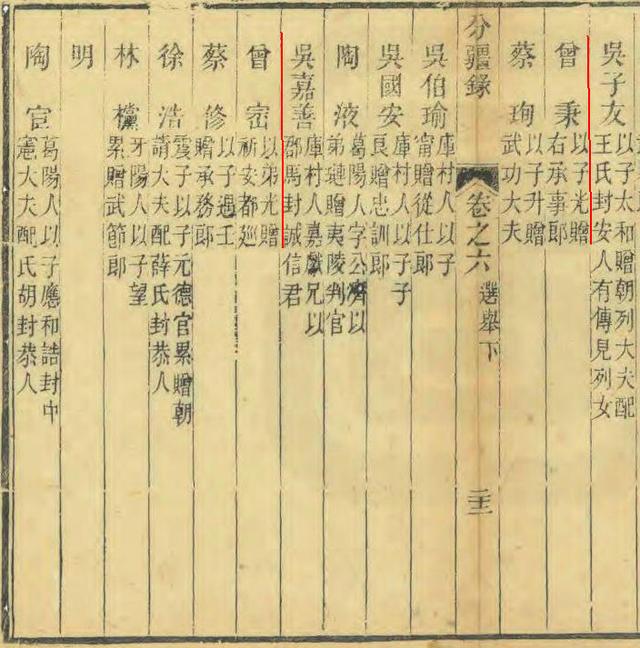 吳子友 以子太和贈朝列大夫配
王氏封安人有傳見列女
曾秉 以子光贈
右承事郎
蔡珣 以子升贈
武功大夫
分疆錄 卷之六 選舉下
吳伯瑜 庫村人以子
甯贈從仕郎
吳國安 庫村人以子子
良贈忠訓郎
陶液 葛陽人字公濟以
弟璉贈夷陵判官
吳嘉善 庫村人嘉猷兄以
郡馬封誠信君
曾密 以弟光贈
祈安都巡
蔡修 以子遇壬
贈承務郎
徐浩 震子以子元德官累贈朝
請大夫配薛氏封恭人
林欓 牙陽人以子望
累贈武節郎
明
陶宣 葛陽人以子應和誥封中
憲大夫配氏胡封恭人